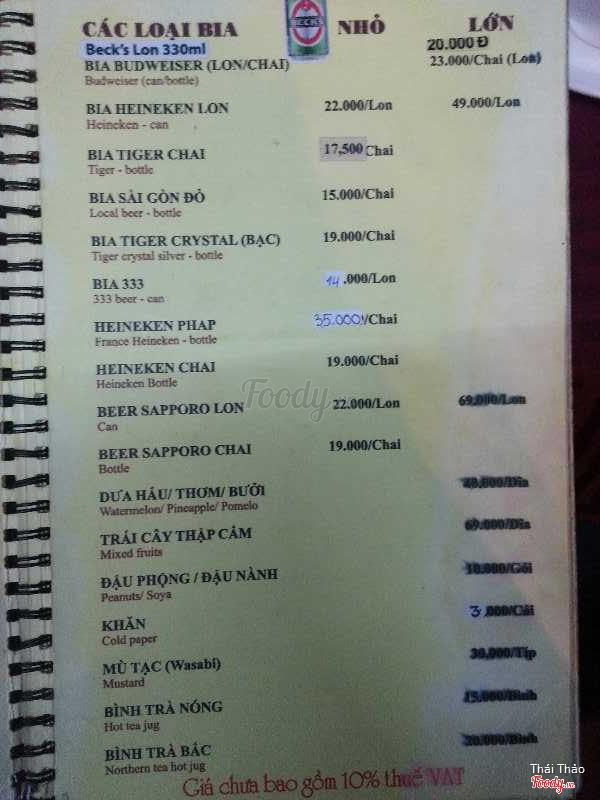 CÁC LOẠI BIA BECK'S NHỎ LỚN
Beck's Lon 330ml 20.000 Đ
BIA BUDWEISER (LON/CHAI) 23.000/Chai (Lon)
Budweiser (can/bottle)
BIA HEINEKEN LON 22.000/Lon 49.000/Lon
Heineken - can
BIA TIGER CHAI 17,500 Chai
Tiger - bottle
BIA SÀI GÒN ĐỎ 15.000/Chai
Local beer - bottle
BIA TIGER CRYSTAL (BẠC) 19.000/Chai
Tiger crystal silver - bottle
BIA 333 14.000/Lon
333 beer - can
HEINEKEN PHAP 35.000/Chai
France Heineken - bottle
HEINEKEN CHAI 19.000/Chai
Heineken Bottle
Foody
BEER SAPPORO LON 22.000/Lon 69.000/Lon
Can
BEER SAPPORO CHAI 19.000/Chai
Bottle
DƯA HẤU/ THƠM/ BƯỞI /Dĩa
Watermelon/ Pineapple/ Pomelo
TRÁI CÂY THẬP CẨM 69.000/Dĩa
Mixed fruits
ĐẬU PHỘNG / ĐẬU NÀNH 10.000/Gói
Peanuts/ Soya
KHĂN 3.000/Cái
Cold paper
MÙ TẠC (Wasabi) 30,000/Típ
Mustard
BÌNH TRÀ NÓNG 15.000/Bình
Hot tea jug
BÌNH TRÀ BẮC 20.000/Bình
Northern tea hot jug
Giá chưa bao gồm 10% thuế VAT
Thái Thảo
Foody.vn